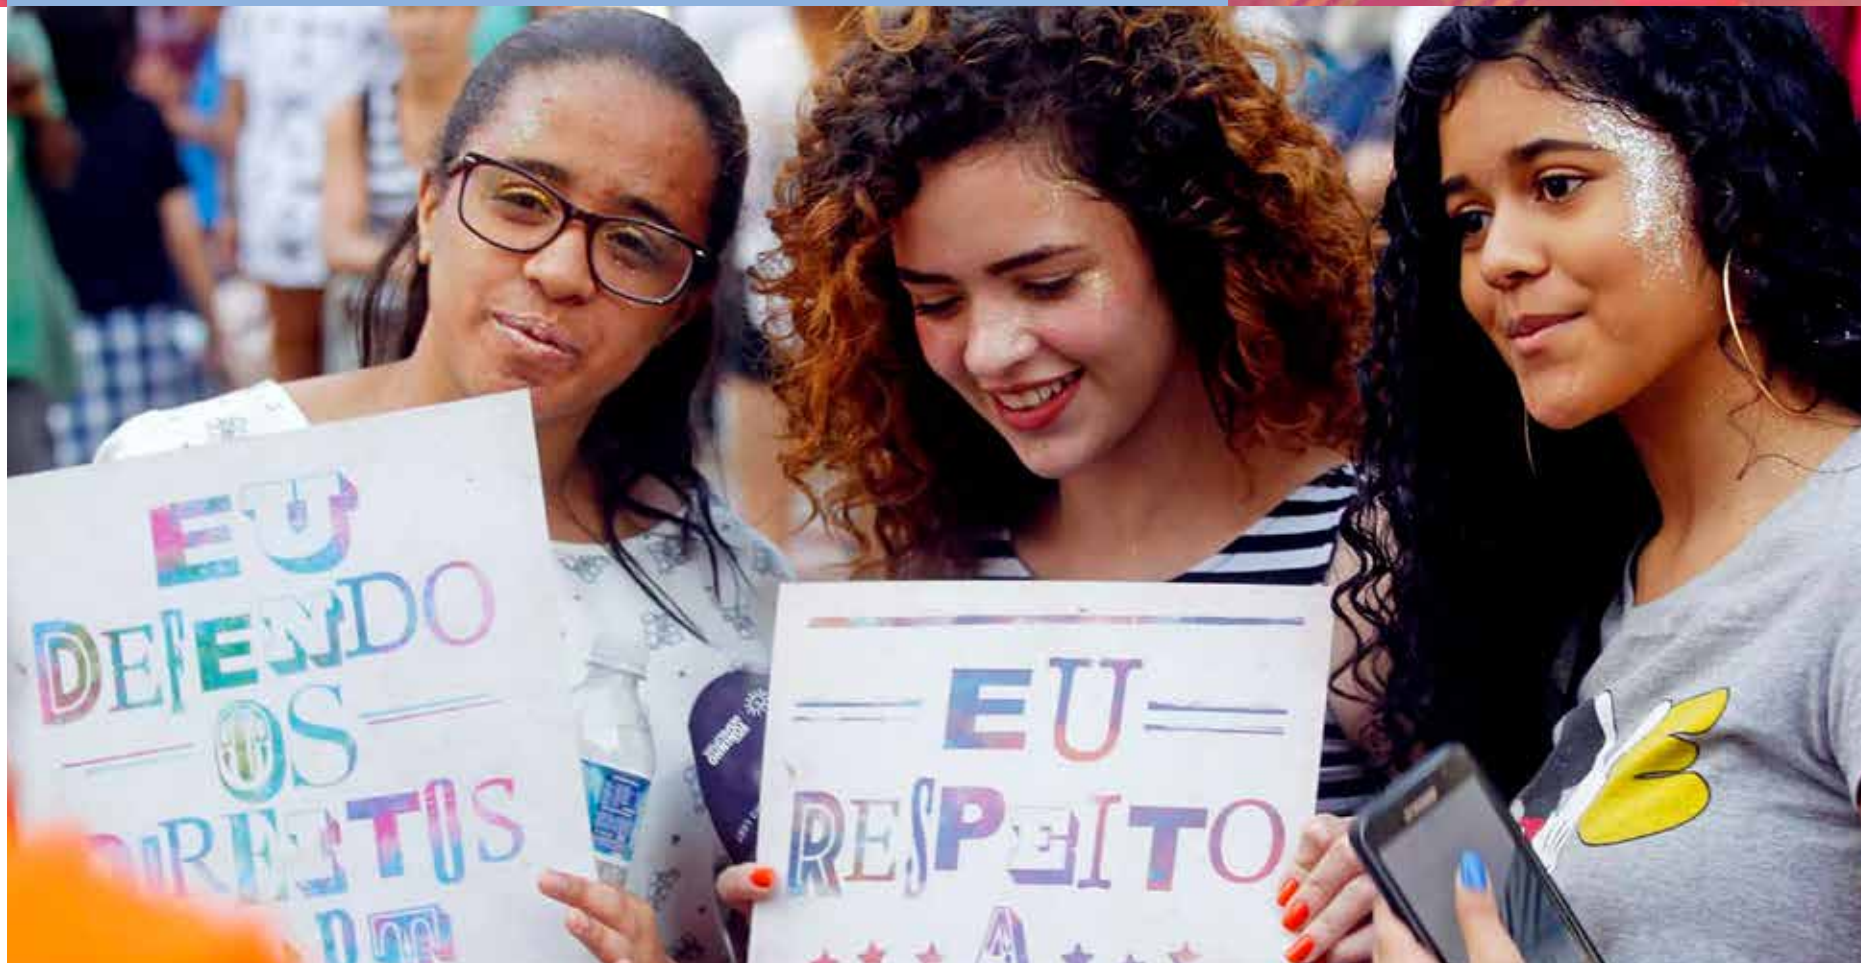 EU
DEFENDO
OS
DIREITOS
DE
EU
RESPEITO
A